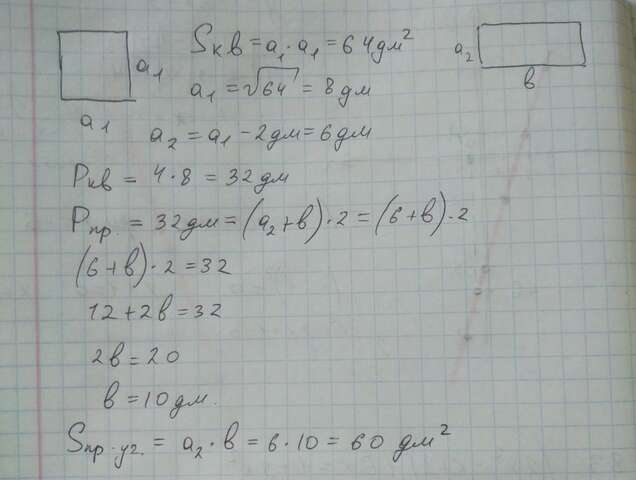 a₁
a₁
Sкв = a₁ · a₁ = 64 дм²
a₂
в
a₁ = √64 = 8 дм
a₂ = a₁ - 2 дм = 6 дм
Pкв = 4 · 8 = 32 дм
Pпр. = 32 дм = (a₂ + в) · 2 = (6 + в) · 2
(6 + в) · 2 = 32
12 + 2в = 32
2в = 20
в = 10 дм.
Sпр.уг. = a₂ · в = 6 · 10 = 60 дм²